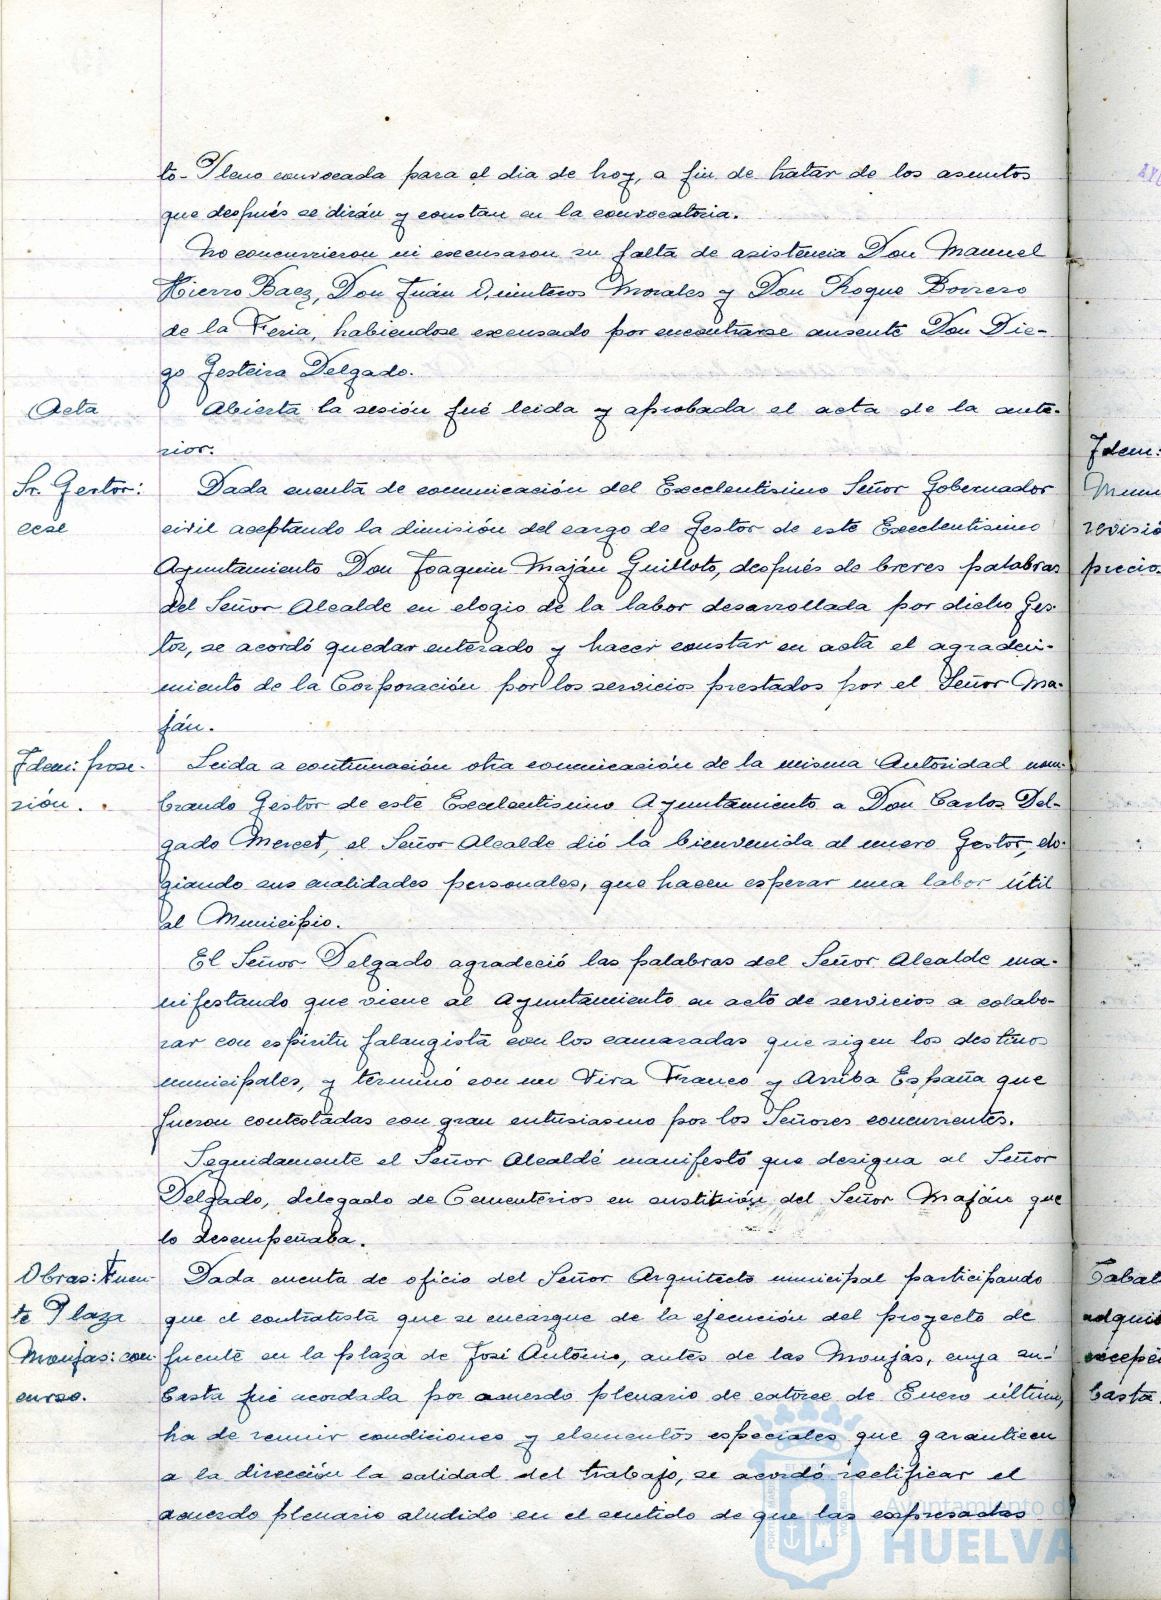 to-Pleno convocada para el dia de hoy, a fin de tratar de los asuntos
que después se dirán y constan en la convocatoria.
No concurrieron ni excusaron su falta de asistencia Don Manuel
Hierro Baez, Don Juán Quinteros Morales y Don Roque Borrero
de la Feria, habiendose excusado por encontrarse ausente Don Die-
go Gesteira Delgado.
Acta
Abierta la sesión fué leida y aprobada el acta de la ante-
rior.
Sr. Gestor:
cese
Dada cuenta de comunicación del Excelentisimo Señor Gobernador
civil aceptando la dimisión del cargo de Gestor de este Excelentisimo
Ayuntamiento Don Joaquin Maján Guilloto, después de breves palabras
del Señor Alcalde en elogio de la labor desarrollada por dicho Ges-
tor, se acordó quedar enterado y hacer constar en acta el agradeci-
miento de la Corporación por los servicios prestados por el Señor Ma-
ján.
Idem: pose-
sión.
Leida a continuación otra comunicación de la misma Autoridad nom-
brando Gestor de este Excelentisimo Ayuntamiento a Don Carlos Del-
gado Mercet, el Señor Alcalde dió la bienvenida al nuevo Gestor, elo-
giando sus cualidades personales, que hacen esperar una labor útil
al Municipio.
El Señor Delgado agradeció las palabras del Señor Alcalde ma-
nifestando que viene al Ayuntamiento en acto de servicios a colabo-
rar con espiritu falangista con los camaradas que rigen los destinos
municipales, y terminó con un Viva Franco y Arriba España que
fueron contestadas con gran entusiasmo por los Señores concurrentes.
Seguidamente el Señor Alcalde manifestó que designa al Señor
Delgado, delegado de Cementerios en sustitución del Señor Maján que
lo desempeñaba.
Obras: Fuen-
te Plaza
Monjas: con-
curso.
Dada cuenta de oficio del Señor Arquitecto municipal participando
que el contratista que se encargue de la ejecución del proyecto de
fuente en la plaza de José Antonio, antes de las Monjas, cuya su-
basta fué acordada por acuerdo plenario de catorce de Enero último,
ha de reunir condiciones y elementos especiales que garanticen
a la dirección la calidad del trabajo, se acordó rectificar el
acuerdo plenario aludido en el sentido de que las expresadas
Idem:
Muni
revisió
precios
Tabal
adquis
recepci
basta.
Ayuntamiento de
HUELVA